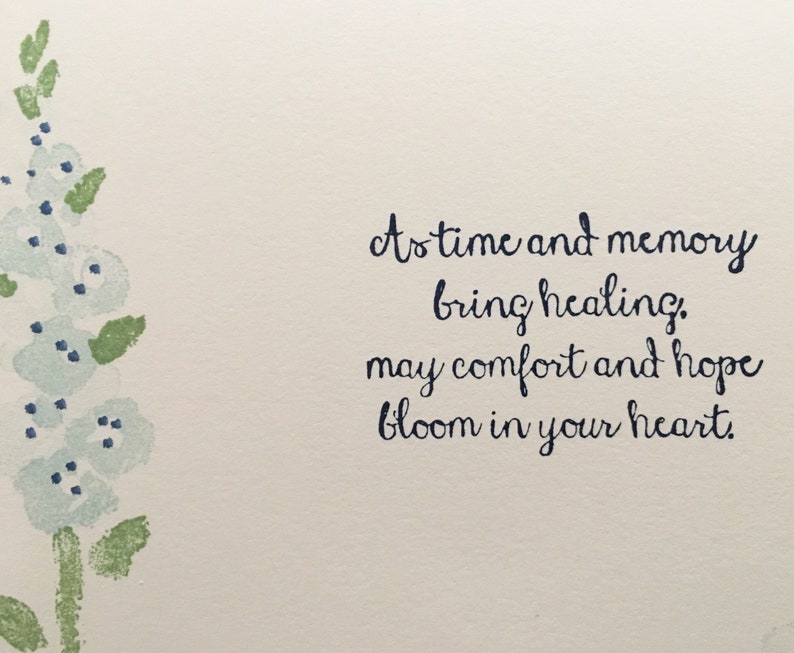 As time and memory
bring healing,
may comfort and hope
bloom in your heart.